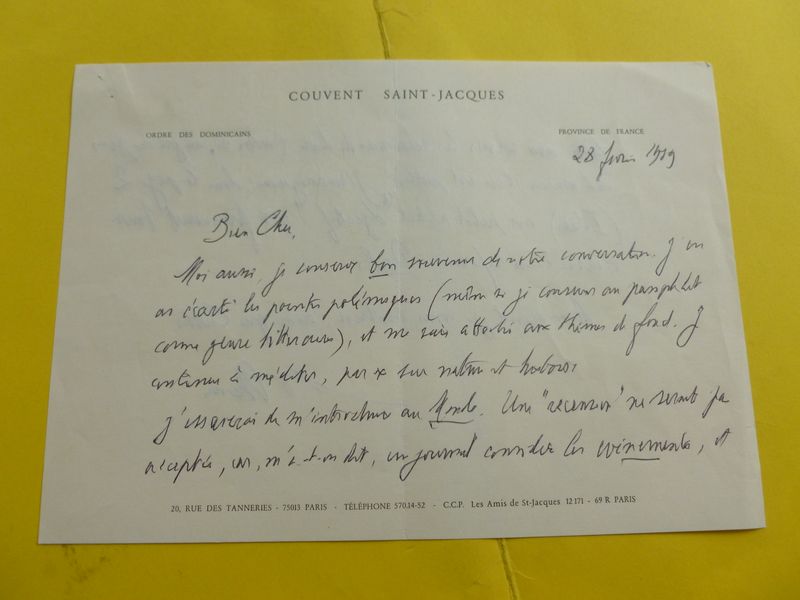 COUVENT SAINT-JACQUES
ORDRE DES DOMINICAINS
PROVINCE DE FRANCE
28 février 1979
Bien Cher,
Moi aussi, je conserve bon souvenir de notre conversation. J'en
ai écarté les pointes polémiques (même si je consens au pamphlet
comme genre littéraire), et me suis attaché aux thèmes de fond. Je
continue à méditer, par ex sur nature et
J'essaierai de m'introduire au Monde. Une "recension" ne serait pas
acceptée, car, m'a-t-on dit, un journal considère les événements, et
20, RUE DES TANNERIES - 75013 PARIS - TÉLÉPHONE 570.14-52 - C.C.P. Les Amis de St-Jacques 12 171 - 69 R PARIS